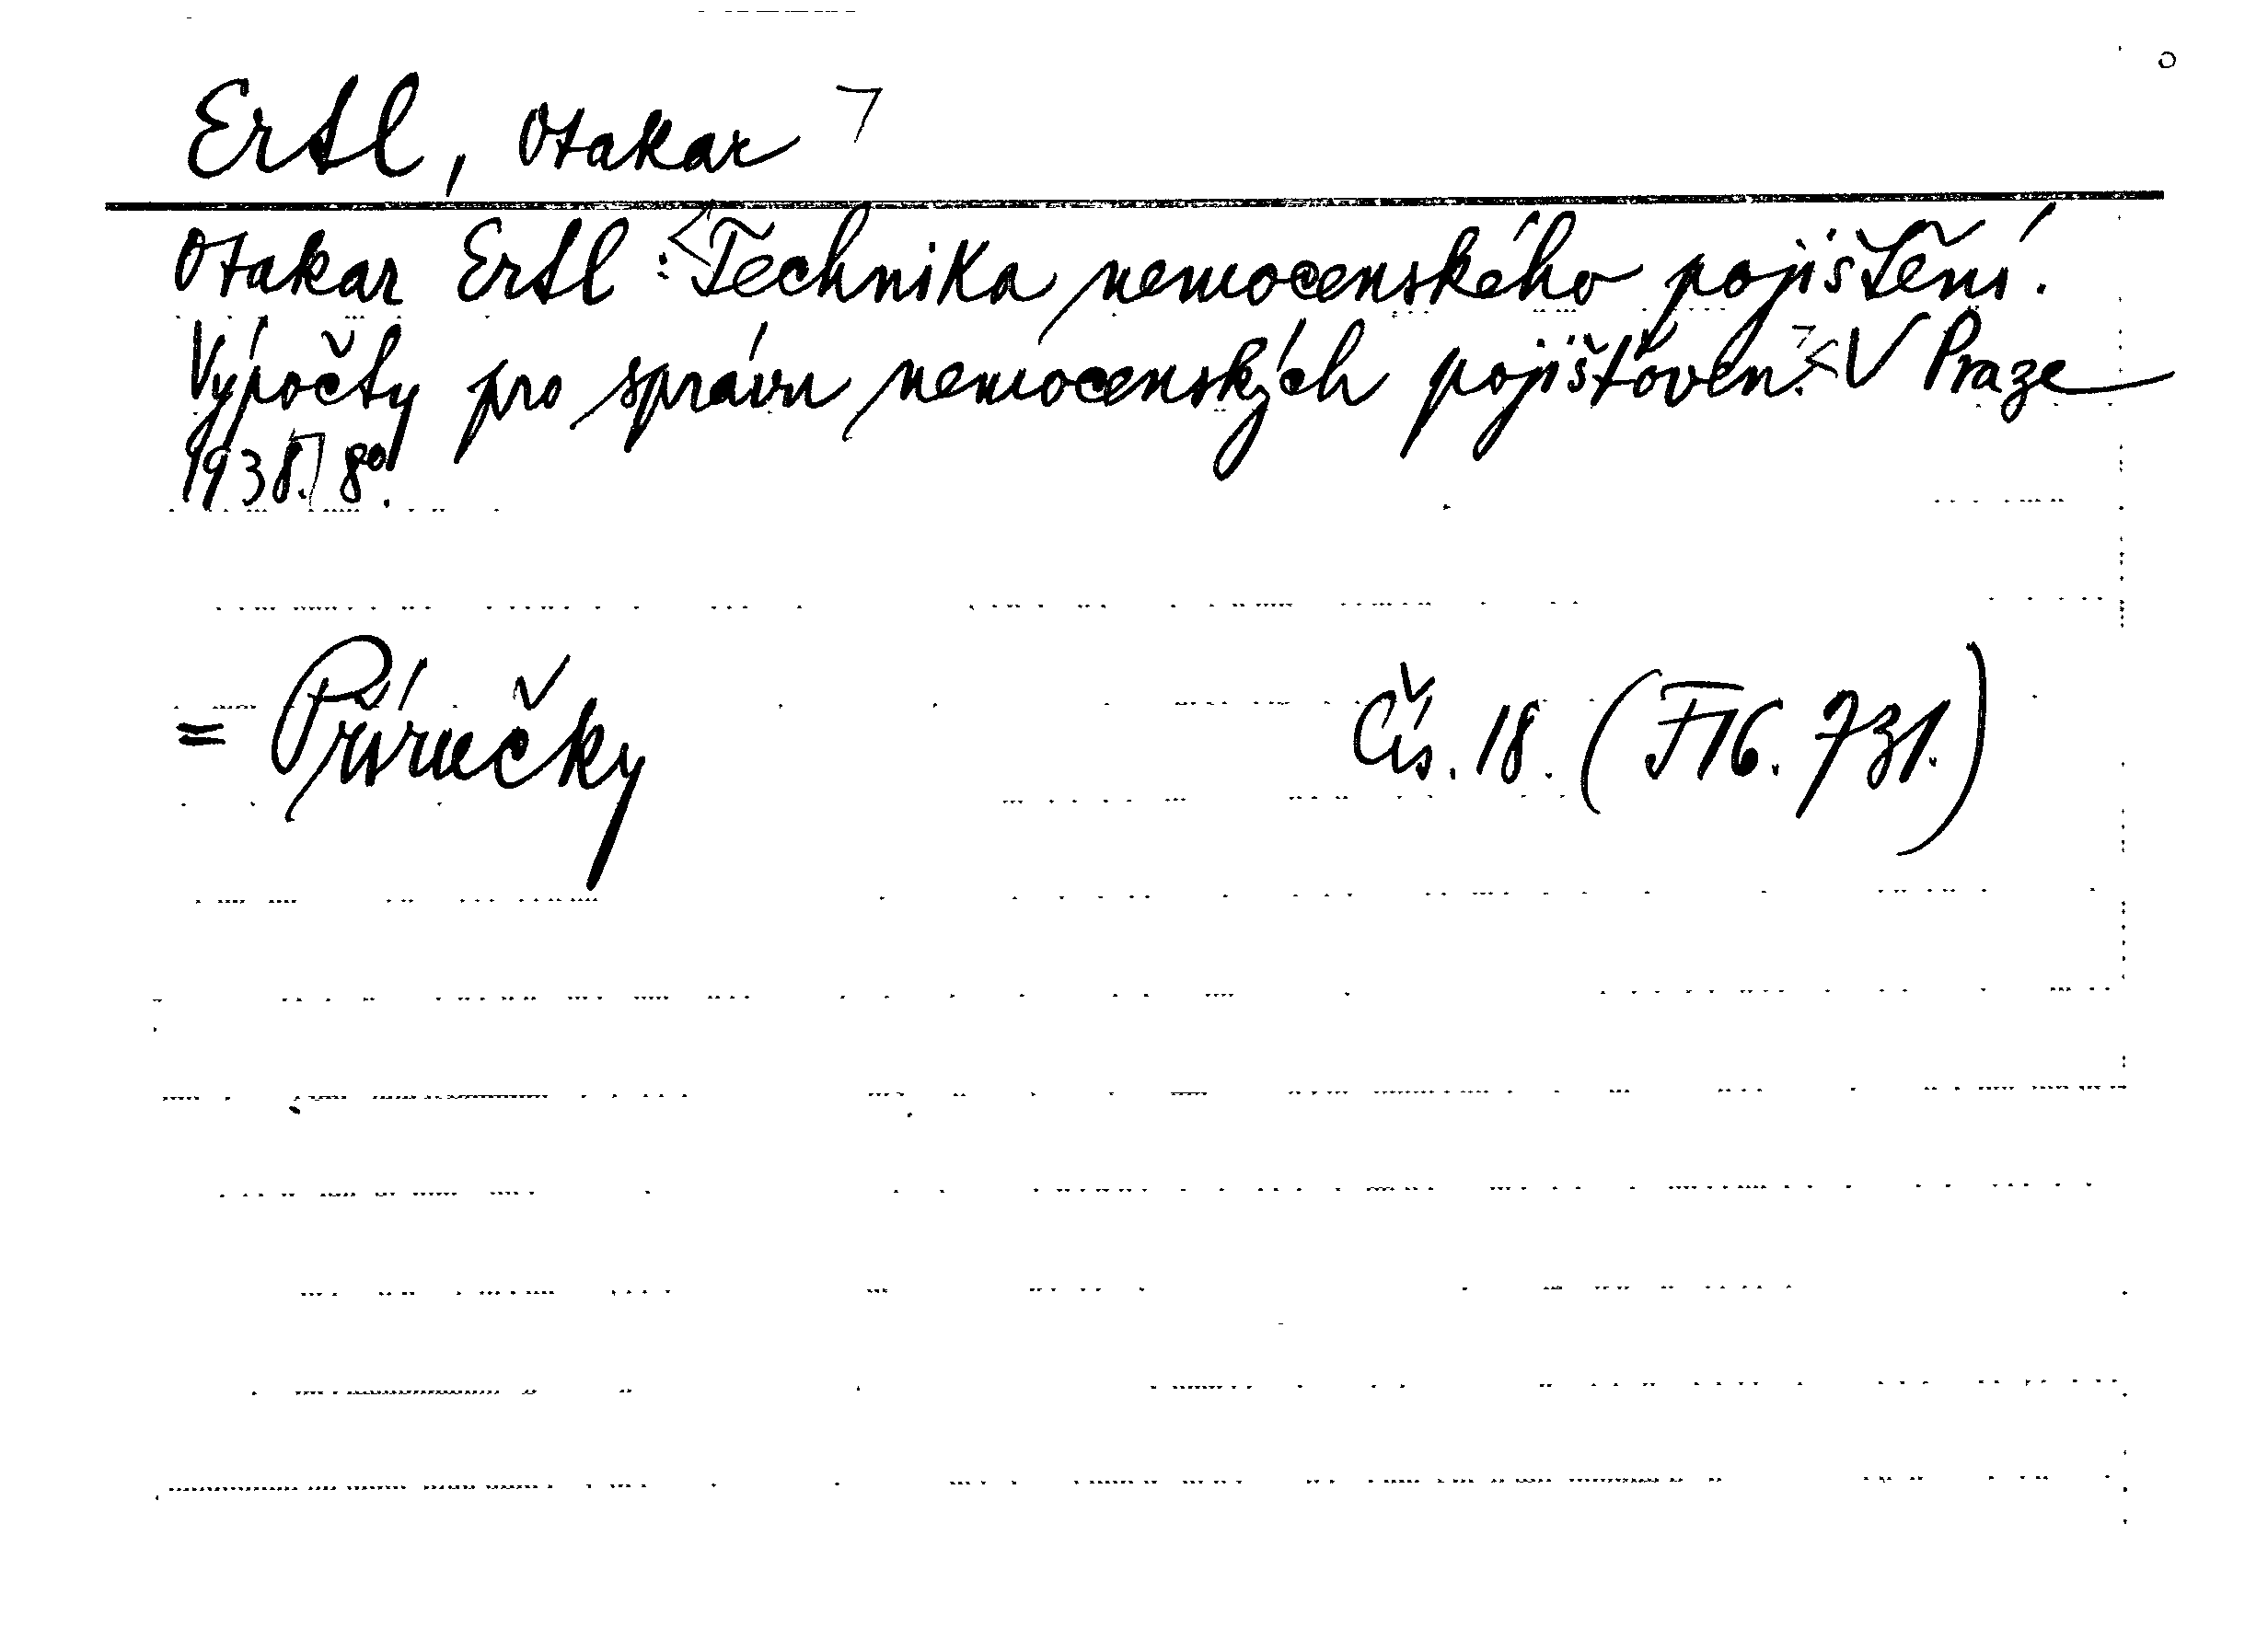 Ertl, Otakar
Otakar Ertl: Technika nemocenského pojištění.
Výpočty pro správu nemocenských pojišťoven. V Praze
1938. 8°.
= Příručky Čís. 18. (F16. 731.)